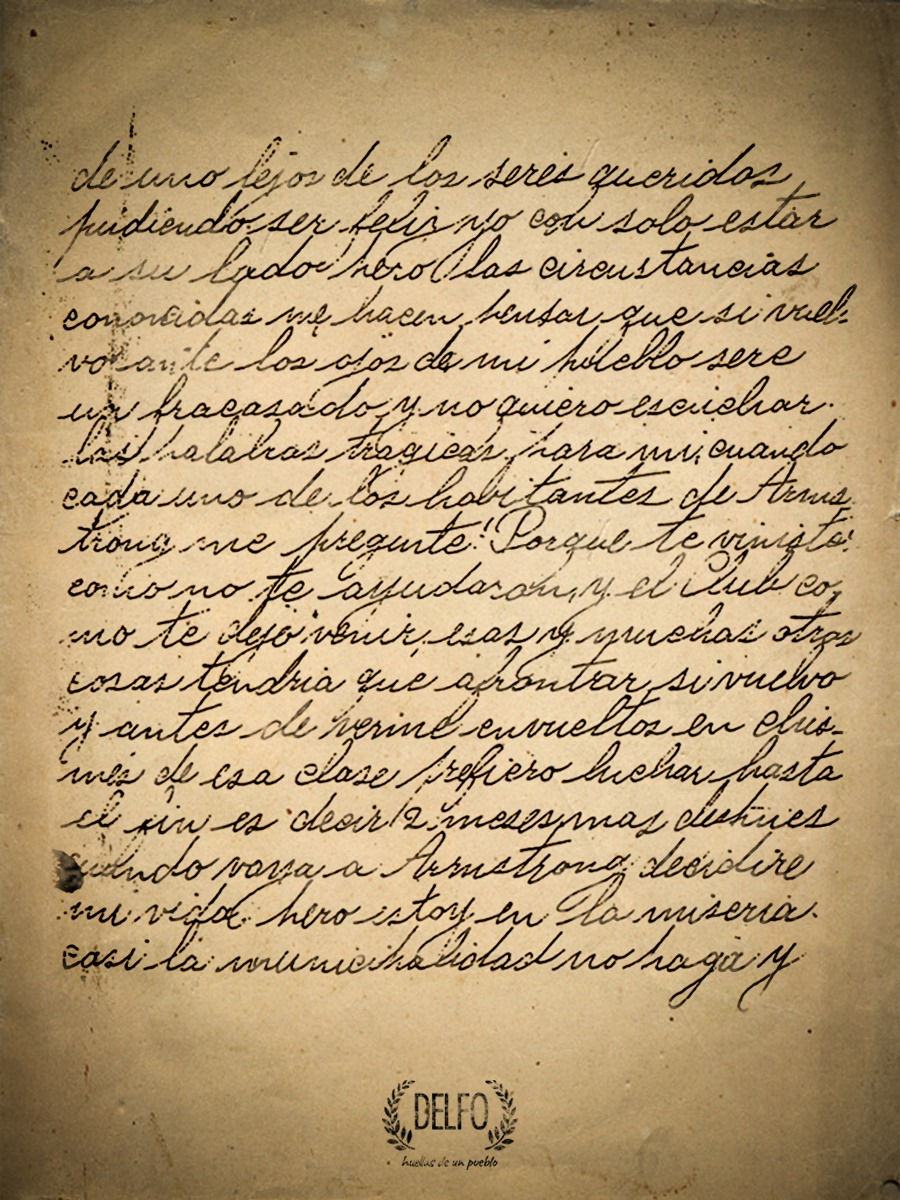 de uno lejos de los seres queridos
pudiendo ser feliz yo con solo estar
a su lado pero las circustancias
conocidas me hacen pensar que si vuel-
vo ante los ojos de mi pueblo sere
un fracasado y no quiero escuchar
las palabras tragicas para mi, cuando
cada uno de los habitantes de Arms
trong me pregunte! Porque te viniste!
como no te ayudaron, y el Club co,
mo te dejo venir, esas y muchas otras
cosas tendria que afrontar si vuelvo
y antes de verme envueltos en chis-
mes de esa clase prefiero luchar hasta
el fin es decir 2 meses mas despues
cuando vaya a Armstrong decidire
mi vida pero estoy en la miseria
casi la municipalidad no paga y
DELFO
huellas de un pueblo